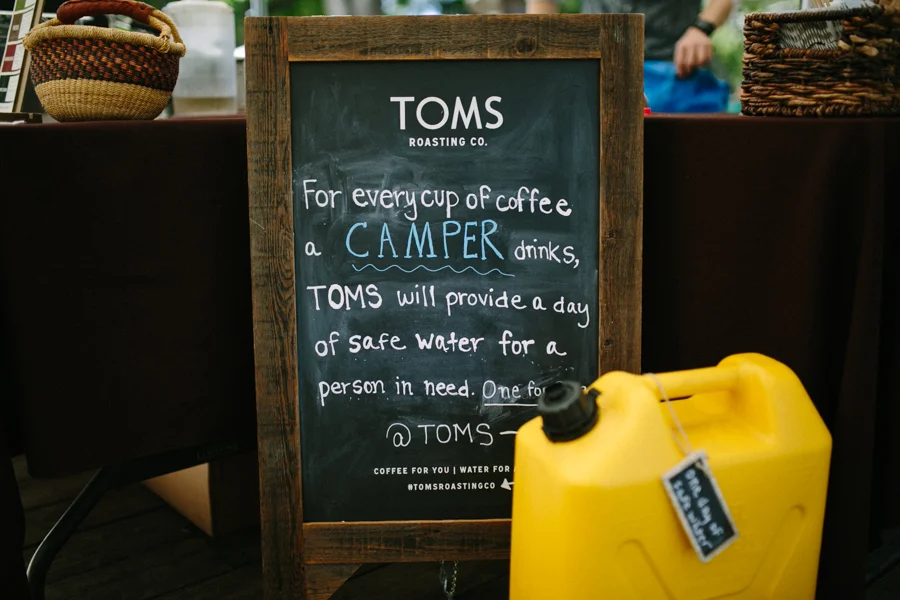 TOMS
ROASTING CO.
For every cup of coffee
a CAMPER drinks,
TOMS will provide a day
of safe water for a
person in need. One for
@TOMS
COFFEE FOR YOU | WATER FOR
#TOMSROASTINGCO
one day of
safe water